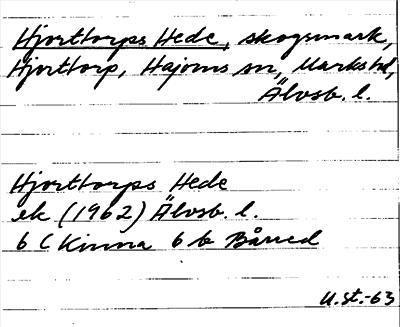 Hjorttorps Hede, skogsmark,
Hjorttorp, Hajoms sn, Marks hd,
Älvsb. l.
Hjorttorps Hede
ek (1962) Älvsb. l.
6 C Kinna 6 b Bårred
U.St.-63